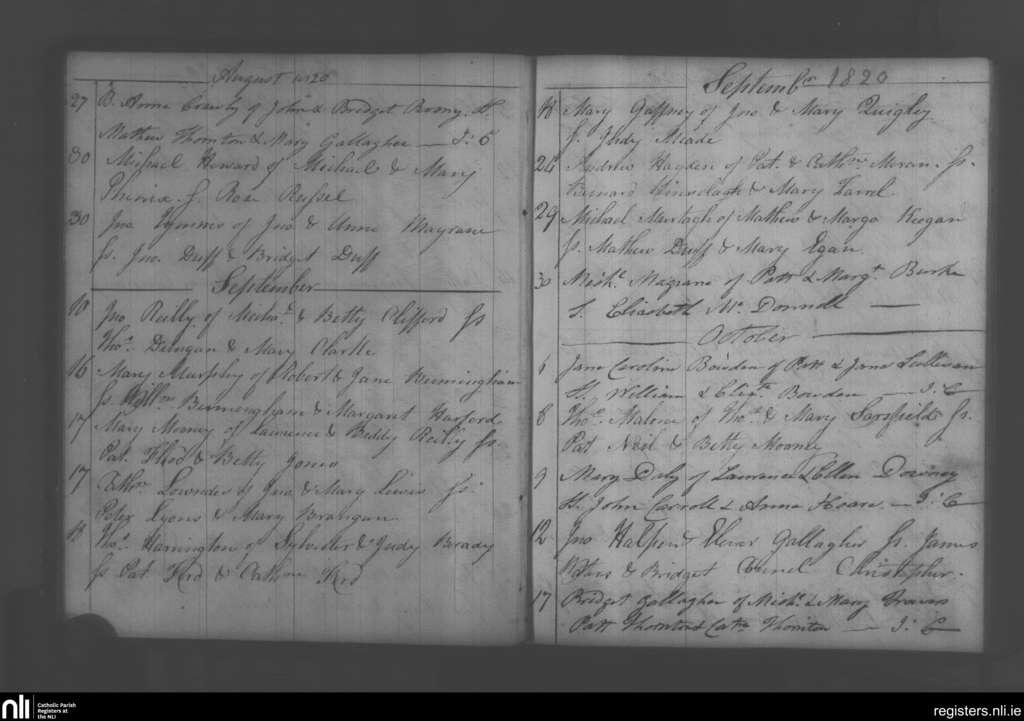 August 1820
27 B. Anne Crawly of John & Bridget Ss.
Mathew Thornton & Mary Gallagher — J: C
30 Michael Howard of Michael & Mary
S. Rose Russel
30 Jno Tymmes of Jno & Anne Magrane
Ss. Jno. Duff & Bridget Duff
September
10 Jno Reilly of Michl. & Betty Clifford Ss
Thos. Dungan & Mary Clarke
16 Mary Murphey of Robert & Jane Bermingham
Ss. Willm Bermingham & Margaret Harford
17 Mary Money of Laurence & Biddy Reilly Ss.
Pat. & Betty Jones
17 Cathn Lowndes of Jno & Mary Lewis Ss.
Peter Lyons & Mary Brangan
Thos. Harrington of Sylvester & Judy Brady
Ss Pat Ford & Cathne Ford
September 1820
18 Mary Gaffney of Jno & Mary Quigley
S. Judy Meade
24 Andrew Hayden of Pat. & Cathne Moran. Ss.
Bernard & Mary Farrel
29 Michael Murtagh of Mathew & Margt Keogan
Ss. Mathew Duff & Mary Egan.
30 Michl. Magrane of Patt & Margt. Burke
S. Elizabeth Mc. Donnell —
October
1 Jane Caroline Bowden of Patt & Jane Sullivan
Ss. William & Elizth Bowden — J: C
8 Thos. Malone of Thos. & Mary Sarsfield Ss.
Pat Neil & Betty Mooney
9 Mary Daly of Laurence & Ellen Downey
Ss. John Carroll & Anne Hoare — J: C
12 Jno Halpen & Elenr Gallagher Ss. James
Peters & Bridget Christopher.
17 Bridget Gallagher of Michl. & Mary
Patt Thornton & Cathe Thornton — J: C
nli
Catholic Parish
Registers at
the NLI
registers.nli.ie